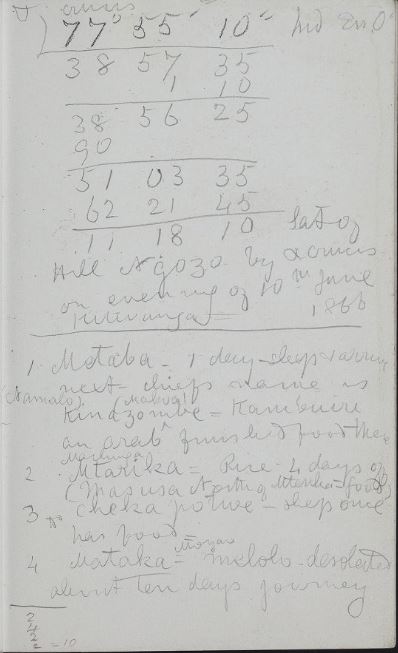 α crucis
77° 55' 10" Ind Er. 0'
38 57 35
1 10
38 56 25
90
51 03 35
62 21 45
11 18 10 Lat of
Hill Ngozo by α crucis
on evening of 10th June
1866
1 Mataba - 1 day sleep & arrive
next chiefs name is
Kinazombe = Kambuire
an arab finished food there
2 Mtarika = Rice - 4 days of
(Masusa North of Mtarika = food)
3 Cheka potwe - sleep one
has food
4 Mataka = Moyao meloto desolated
about ten days journey
2
4
= 10